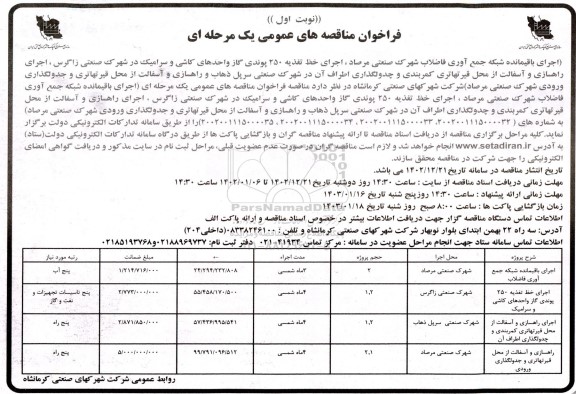 ((نوبت اول))
فراخوان مناقصه های عمومی یک مرحله ای
(اجرای باقیمانده شبکه جمع آوری فاضلاب شهرک صنعتی مرصاد ، اجرای خط تغذیه ۲۵۰ پوندی گاز واحدهای کاشی و سرامیک در شهرک صنعتی زاگرس ، اجرای
راهسازی و آسفالت از محل قیرتهاتری کمربندی و جدولگذاری اطراف آن در شهرک صنعتی سرپل ذهاب و راهسازی و آسفالت از محل قیرتهاتری و جدولگذاری
ورودی شهرک صنعتی مرصاد)شرکت شهرکهای صنعتی کرمانشاه در نظر دارد مناقصه فراخوان مناقصه های عمومی یک مرحله ای (اجرای باقیمانده شبکه جمع آوری
فاضلاب شهرک صنعتی مرصاد ، اجرای خط تغذیه ۲۵۰ پوندی گاز واحدهای کاشی و سرامیک در شهرک صنعتی زاگرس ، اجرای راهسازی و آسفالت از محل
قیرتهاتری کمربندی و جدولگذاری اطراف آن در شهرک صنعتی سرپل ذهاب و راهسازی و آسفالت از محل قیرتهاتری و جدولگذاری ورودی شهرک صنعتی مرصاد)
به شماره های (۲۰۰۲۰۰۱۱۱۵۰۰۰۰۳۲ ، ۲۰۰۲۰۰۱۱۱۵۰۰۰۰۳۳ ، ۲۰۰۲۰۰۱۱۱۵۰۰۰۰۳۴ ، ۲۰۰۲۰۰۱۱۱۵۰۰۰۰۳۵)را از طریق سامانه تدارکات الکترونیکی دولت برگزار
نماید.کلیه مراحل برگزاری مناقصه از دریافت اسناد مناقصه تا ارائه پیشنهاد مناقصه گران و بازگشایی پاکت ها از طریق درگاه سامانه تدارکات الکترونیکی دولت(ستاد)
به آدرس www.setadiran.ir انجام خواهد شد و لازم است مناقصه گران در صورت عدم عضویت قبلی، مراحل ثبت نام در سایت مذکور و دریافت گواهی امضای
الکترونیکی را جهت شرکت در مناقصه محقق سازند.
تاریخ انتشار مناقصه در سامانه تاریخ۱۴۰۲/۱۲/۲۱ می باشد.
مهلت زمانی دریافت اسناد مناقصه از سایت : ساعت ۱۴:۳۰ روز دوشنبه تاریخ۱۴۰۲/۱۲/۲۱ تا ۱۴۰۳/۰۱/۰۶ ساعت ۱۴:۳۰
مهلت زمانی ارائه پیشنهاد : ساعت ۱۴:۳۰ روزپنج شنبه تاریخ ۱۴۰۳/۰۱/۱۶
زمان بازگشایی پاکت ها : ساعت ۸:۰۰ صبح روز شنبه تاریخ ۱۴۰۳/۰۱/۱۸
اطلاعات تماس دستگاه مناقصه گزار جهت دریافت اطلاعات بیشتر در خصوص اسناد مناقصه و ارائه پاکت الف
آدرس: سه راه ۲۲ بهمن ابتدای بلوار نوبهار شرکت شهرکهای صنعتی کرمانشاه و تلفن : ۰۸۳۳۸۲۴۶۱۰۰(داخلی۲۰۴)
اطلاعات تماس سامانه ستاد جهت انجام مراحل عضویت در سامانه : مرکز تماس ۴۱۹۳۴-۰۲۱ دفتر ثبت نام: ۰۲۱۸۸۹۶۹۷۳۷ و۰۲۱۸۵۱۹۳۷۶۸
شرح پروژه محل اجرا حجم پروژه مدت اجراء مبلغ ضمانت رتبه مورد نیاز
اجرای باقیمانده شبکه جمع آوری فاضلاب شهرک صنعتی مرصاد ۲ ۳ماه شمسی ۲۴/۲۹۴/۲۳۲/۸۰۸ ۱/۲۱۴/۷۱۶/۰۰۰ پنج آب
اجرای خط تغذیه ۲۵۰ پوندی گاز واحدهای کاشی و سرامیک شهرک صنعتی زاگرس ۱,۲ ۴ماه شمسی ۵۵/۴۵۸/۱۷۰/۵۰۰ ۲/۷۷۳/۰۰۰/۰۰۰ پنج تاسیسات تجهیزات و نفت و گاز
اجرای راهسازی و آسفالت از محل قیرتهاتری کمربندی و جدولگذاری اطراف آن شهرک صنعتی سرپل ذهاب ۱,۲ ۴ماه شمسی ۵۷/۴۳۶/۹۹۵/۵۴۱ ۲/۸۷۱/۸۵۰/۰۰۰ پنج راه
راهسازی و آسفالت از محل قیرتهاتری و جدولگذاری ورودی شهرک صنعتی مرصاد ۲,۱ ۴ماه شمسی ۹۹/۷۹۱/۰۹۴/۵۱۲ ۵/۰۰۰/۰۰۰/۰۰۰ پنج راه
روابط عمومی شرکت شهرکهای صنعتی کرمانشاه